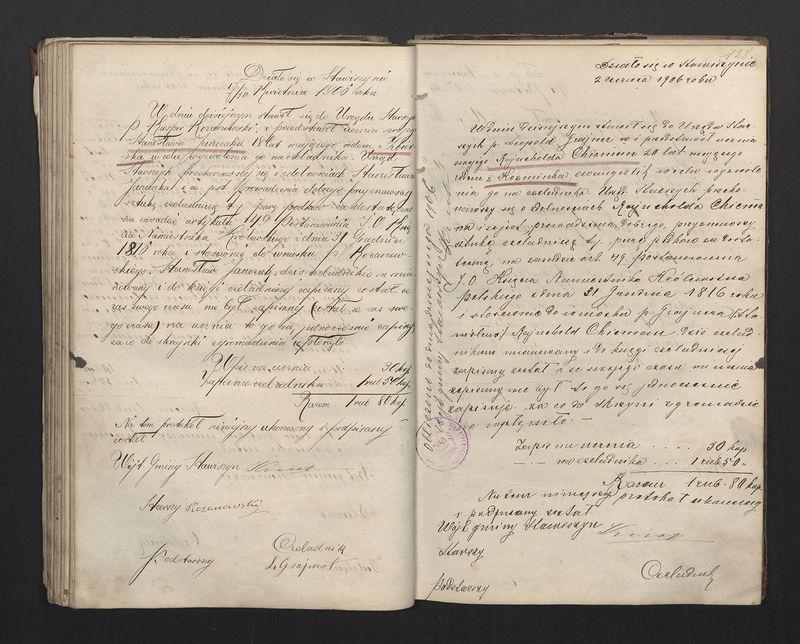 Działo się w Stawiszynie
17/30 Kwietnia 1906 roku
W dniu dzisiejszym stawił się do Urzędu Starszych
P. Kasper Rozanowski i przedstawił ucznia swojego
Stanisława Janczaka 18 lat mającego rodem z
w celu wyzwolenia go na czeladnika. Urząd
Starszych przekonawszy się o zdolnościach Stanisława
Janczaka i co do prowadzenia dobrego przyznawszy
sztukę czeladniczą tj. parę podków za dostateczną
na zasadzie artykułu 149 Postanowienia J. O. Księcia
Namiestnika Królewskiego z dnia 31 Grudnia
1816 roku i stosownie do wniosku p. Rozanowskiego
Stanisław Janczak dziś czeladnikiem mianowany
i do księgi czeladniczej zapisany został a
zaś swego czasu nie był zapisany (został za czas swego
czasu) na ucznia to go się jednocześnie zapisuje
za co do skrzynki zgromadzenia wpłynęło
Wpis na ucznia 30 kop
Zapisanie czeladnika 1 rub 50 kop
Razem 1 rub 80 kop
Na tem protokół niniejszy ukończony i podpisany
został
Wójt Gminy Stawiszyn
Starszy Rozanowski
Podstarszy
Czeladnik
123
Działo się w Stawiszynie
2 czerwca 1906 roku
W dniu dzisiejszym stawił się do Urzędu Starszych
p. Leopold Grajner i przedstawił ucznia
swojego Rajncholda Chieman 20 lat mającego
rodem z Kozminka ewangelik w celu wyzwolenia
go na czeladnika Urząd Starszych przekonawszy
się o zdolnościach Rajncholda Chieman
i co prowadzenia dobrego, przyznawszy
sztukę czeladniczą tj. parę podków za dostateczną,
na zasadzie art 149. Postanowienia
J. O. Księcia Namiestnika Królestwa
Polskiego z dnia 31 Grudnia 1816 roku
i stosownie do wniosku p Grajnera
Rajnhold Chieman dziś czeladnikiem
mianowany i do księgi czeladniczej
zapisany został a że swojego czasu na ucznia
zapisany nie był to go się jednocześnie
zapisuje. za co do skrzyni zgromadzenia
wpłynęło
Zapis na ucznia .... 30 kop
— na czeladnika ... 1 rub. 50 „
Razem 1 rub. 80 kop.
Na tem niniejszy protokół ukończony
i podpisany został
Wójt gminy Stawiszyn
Starszy
Czeladnik
Podstarszy